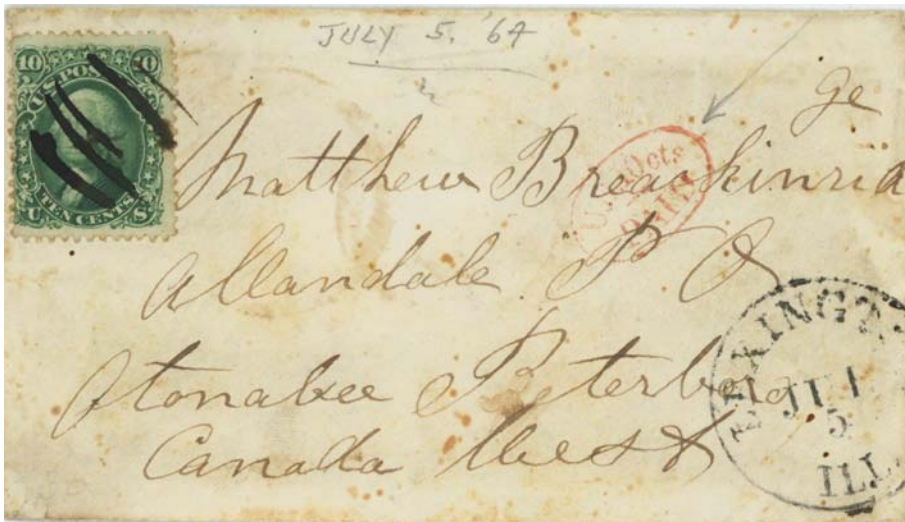 JULY 5. '64
10 U.S. POST 10
TEN CENTS
U S
ge
Matthew Breackinrid
Allandale P O
Otonabee Peterboro
Canada West
10cts
PAID
LEXINGT
JUL
5
ILL